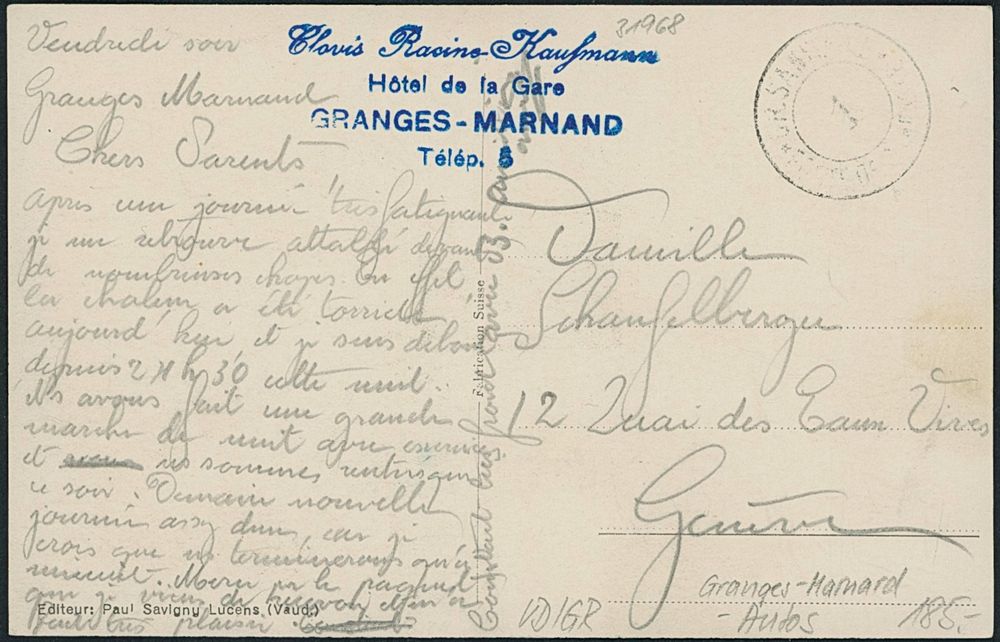 31968
Clovis Racine-Kaufmann
Hôtel de la Gare
GRANGES-MARNAND
Télép. 5
Vendredi soir
Granges Marnand
Chers Parents
Après une journée très fatiguante
je me retrouve attablé devant
de nombreuses chopes. En effet
la chaleur a été torride
aujourd'hui et je suis debout
depuis 2 h 30 cette nuit.
Ns avons fait une grande
marche de nuit avec exercice
et ns sommes rentrés que
ce soir. Demain nouvelle
journée assez dure, car je
crois que ns terminerons qu'à
minuit. Merci pr le paquet
que je viens de recevoir
fait très plaisir
Fabrication Suisse
Famille
Schaufelberger
12 Quai des Eaux Vives
Genève
Editeur: Paul Savigny Lucens (Vaud.)
VD/GR
Granges-Marnard
-Autos
185.-